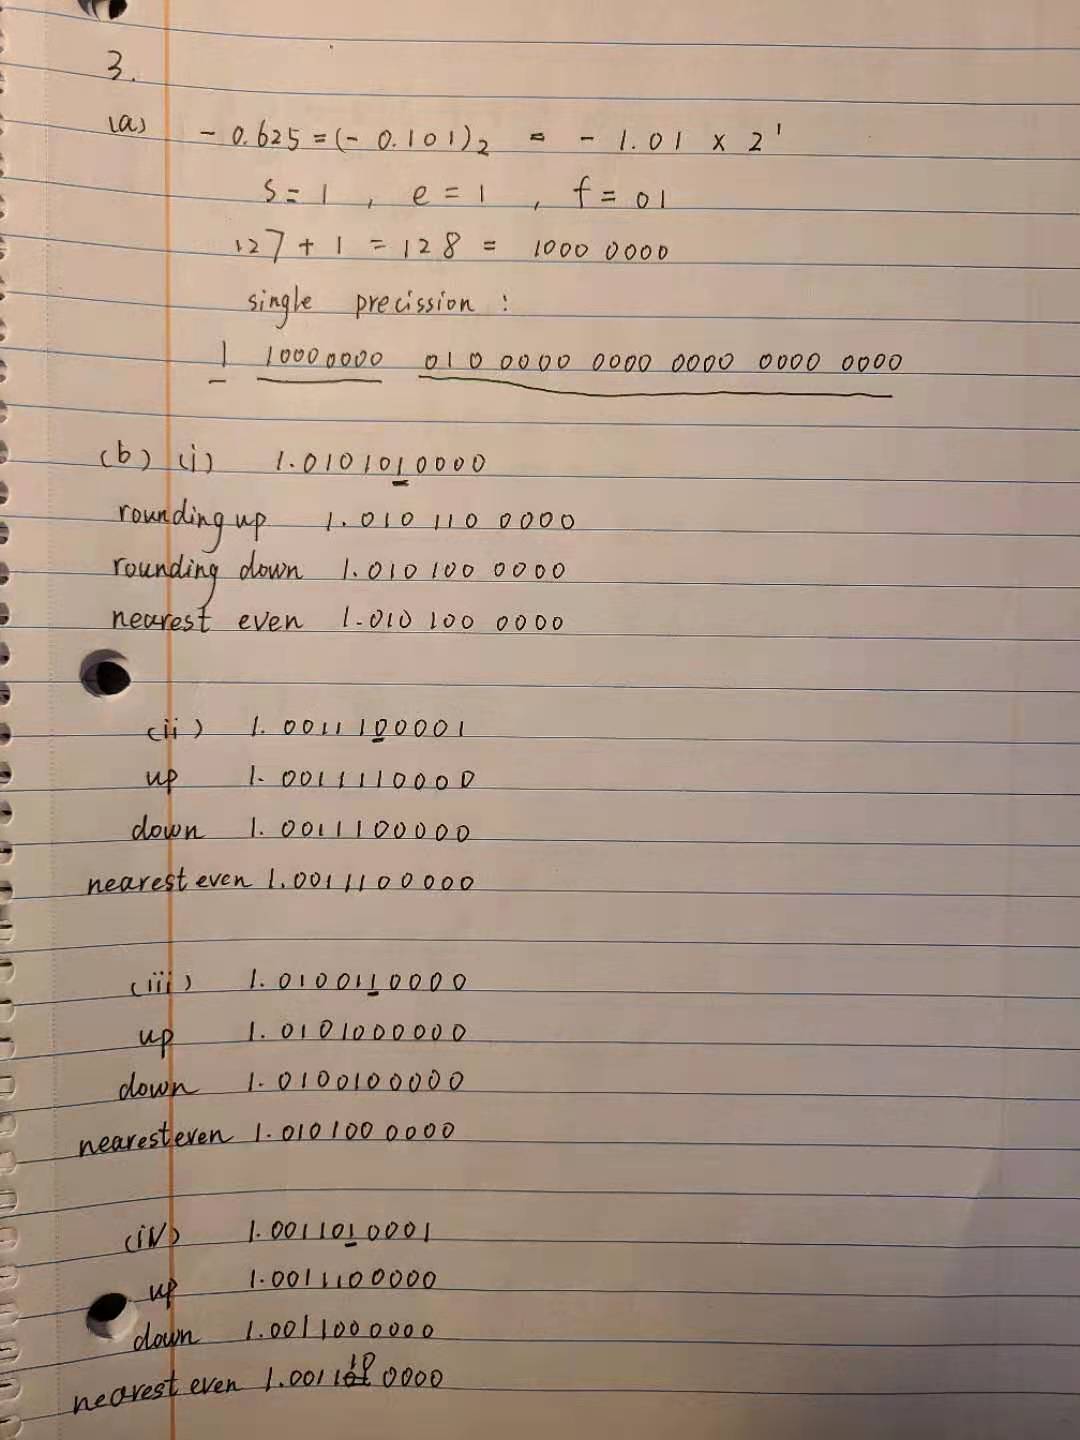 3.
(a) - 0.625 = (- 0.101)₂ = - 1.01 × 2¹
s = 1 , e = 1 , f = 01
127 + 1 = 128 = 1000 0000
single precission :
1 10000000 010 0000 0000 0000 0000 0000
(b) (i) 1.0101010000
rounding up 1.010 110 0000
rounding down 1.010 100 0000
nearest even 1.010 100 0000
(ii) 1.0011100001
up 1.0011110000
down 1.0011100000
nearest even 1.0011100000
(iii) 1.0100110000
up 1.0101000000
down 1.0100100000
nearest even 1.010100 0000
(iv) 1.0011010001
up 1.0011100000
down 1.0011000000
nearest even 1.001110 0000